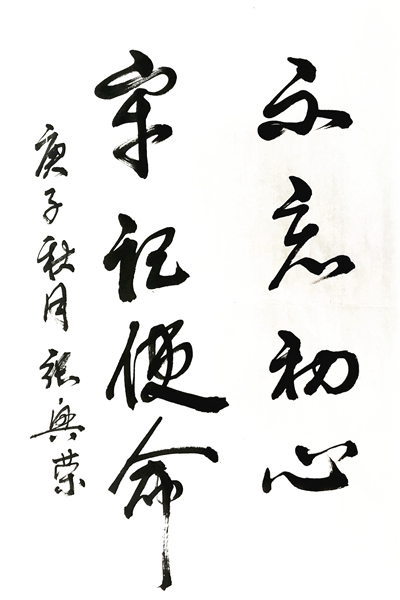 不忘初心
牢记使命
庚子秋月 张兴荣